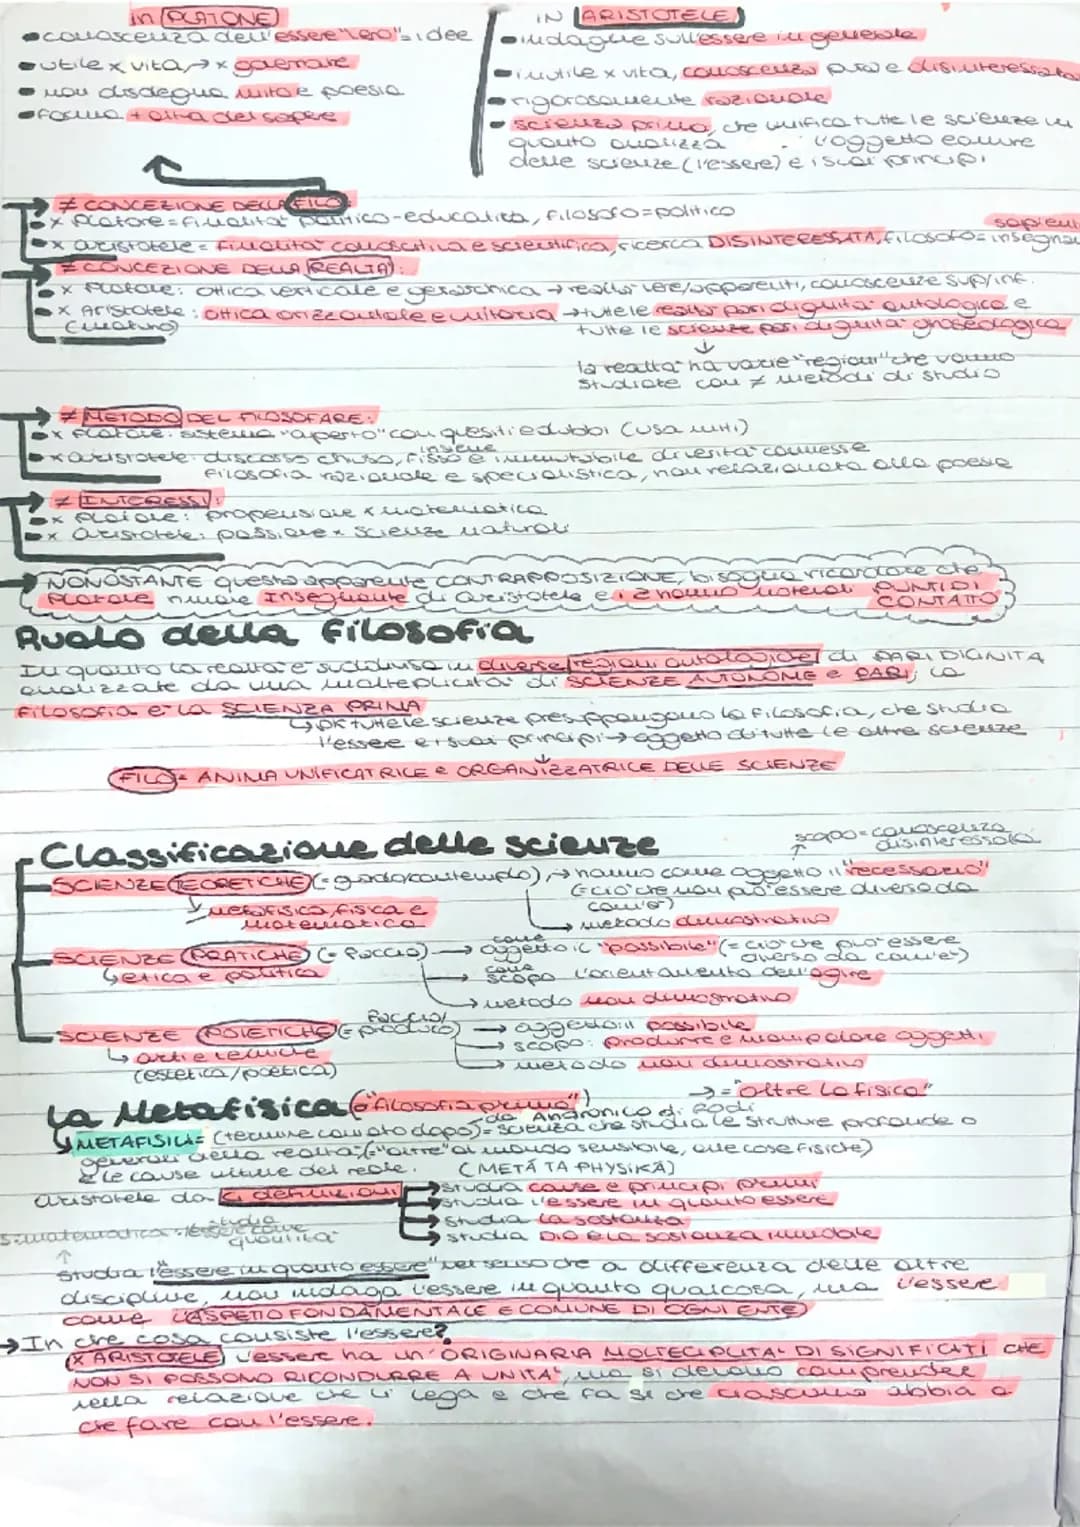 in PLATONE
• conoscenza dell'essere "vero" = idee
• utile x vita → x governare
• non disdegna mito e poesia
• forma + alta del sapere
IN ARISTOTELE
• indagine sull'essere in generale
• inutile x vita, conoscenza pura e disinteressata
• rigorosamente razionale
• scienza prima, che unifica tutte le scienze in
quanto analizza l'oggetto comune
delle scienze (l'essere) e i suoi principi
→ ≠ CONCEZIONE DELLA FILO:
• x Platone = finalità politico-educativa, filosofo = politico
• x aristotele = finalità conoscitiva e scientifica, ricerca DISINTERESSATA, filosofo = sapienti insegnan
→ ≠ CONCEZIONE DELLA REALTÀ:
• x Platone: ottica verticale e gerarchica → realtà vere/apparenti, conoscenze sup/inf.
• x Aristotele: ottica orizzontale e unitaria → tutte le realtà pari dignità ontologica e
(maturo) tutte le scienze pari dignità gnoseologica
↓
la realtà ha varie "regioni" che vanno
studiate con ≠ metodi di studio
→ ≠ METODO DEL FILOSOFARE:
• x Platone: sistema "aperto" con quesiti e dubbi (usa miti)
• x aristotele: discorso chiuso, insieme fisso e immutabile di verità connesse
filosofia razionale e specialistica, non relazionata alla poesia
→ ≠ INTERESSI:
• x Platone: propensione x matematica
• x aristotele: passione x scienze naturali
→ NONOSTANTE questa apparente CONTRAPPOSIZIONE, bisogna ricordare che
Platone rimane insegnante di aristotele e i 2 hanno notevoli PUNTI DI
CONTATTO
Ruolo della filosofia
In quanto la realtà è suddivisa in diverse regioni ontologiche di PARI DIGNITÀ
analizzate da una molteplicità di SCIENZE AUTONOME e PARI, la
filosofia è la SCIENZA PRIMA
↳ pk tutte le scienze presuppongono la filosofia, che studia
l'essere e i suoi principi → oggetto di tutte le altre scienze
↓
FILO = ANIMA UNIFICATRICE e ORGANIZZATRICE DELLE SCIENZE
Classificazione delle scienze
scopo = conoscenza
disinteressata
SCIENZE TEORETICHE (= guardo/contemplo) → hanno come oggetto il "necessario"
(= ciò che non può essere diverso da
com'è)
↳ metafisica, fisica e
matematica
→ metodo dimostrativo
SCIENZE PRATICHE (= faccio) → come oggetto il "possibile" (= ciò che può essere
diverso da com'è)
↳ etica e politica
→ come scopo l'orientamento dell'agire
→ metodo non dimostrativo
SCIENZE POIETICHE (= faccio/produco) → oggetto: il possibile
→ scopo: produrre e manipolare oggetti
↳ arti e tecniche
→ metodo non dimostrativo
(estetica/poetica)
La Metafisica (o "filosofia prima")
→ = "oltre la fisica"
↳ METAFISICA = (termine coniato dopo) da Andronico di Rodi = scienza che studia le strutture profonde o
generali della realtà (= "oltre" al mondo sensibile, alle cose fisiche)
e le cause ultime del reale. (METÀ TA PHYSIKÀ)
aristotele dà 4 definizioni
→ studia cause e principi primi
→ studia l'essere in quanto essere
→ studia la sostanza
→ studia DIO e la sostanza immobile
matematica: studia l'essere come
quantità
↑
studia l'essere in quanto essere" nel senso che a differenza delle altre
discipline, non indaga l'essere in quanto qualcosa, ma l'essere
come L'ASPETTO FONDAMENTALE E COMUNE DI OGNI ENTE
→ In che cosa consiste l'essere?
X ARISTOTELE l'essere ha un' ORIGINARIA MOLTECIPLITÀ DI SIGNIFICATI CHE
NON SI POSSONO RICONDURRE A UNITÀ, ma si devono comprendere
nella relazione che li lega e che fa sì che ciascuno abbia a
che fare con l'essere.